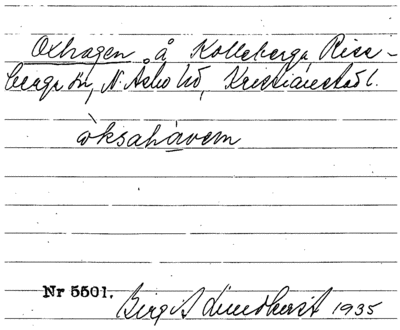 Oxhagen å Kolleberga, Riss-
berga sn, N. Åsbo hd, Kristianstads l.
òksahàvem
Nr 5501. Birgit Lundqvist 1935